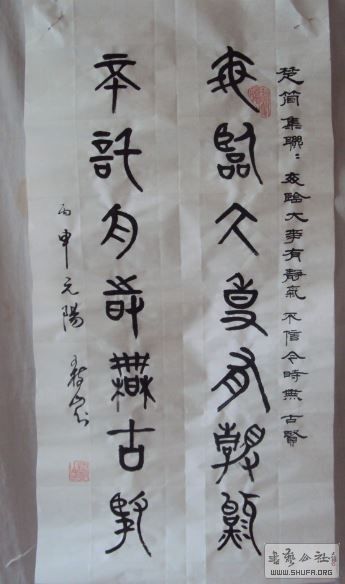 楚簡集聯：每臨大事有靜氣 不信今時無古賢
每臨大事有靜氣
不信今時無古賢
丙申元陽
書藝公社
WWW.SHUFA.ORG